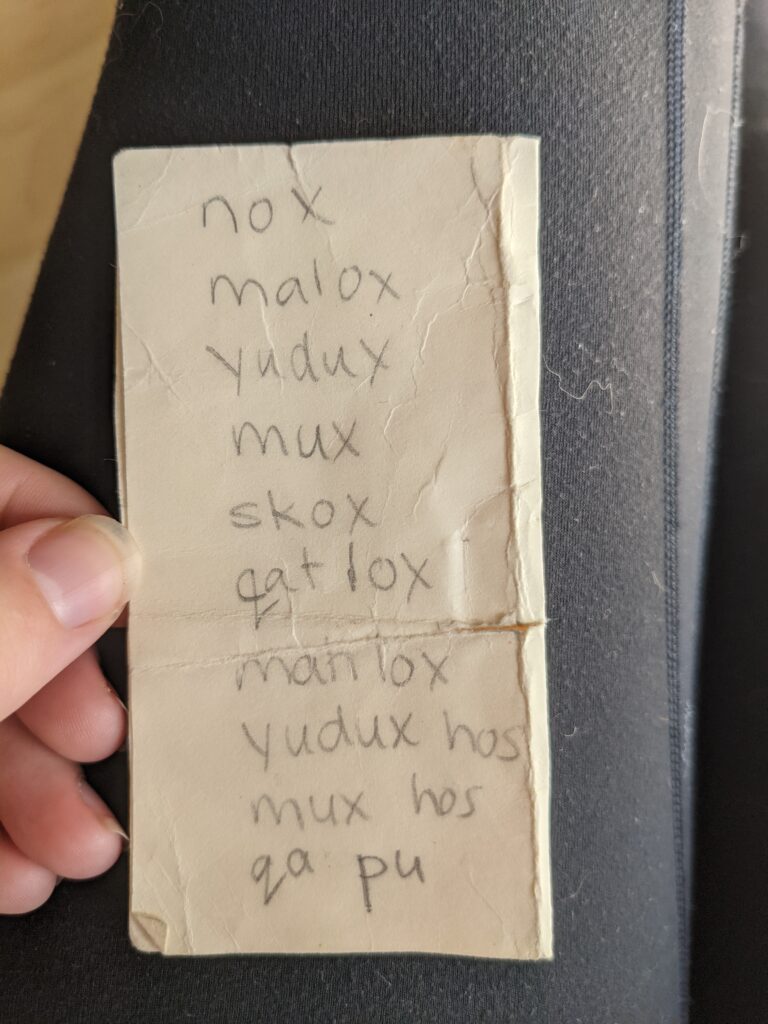 nox
malox
yudux
mux
skox
qat lox
man lox
yudux hos
mux hos
qa pu